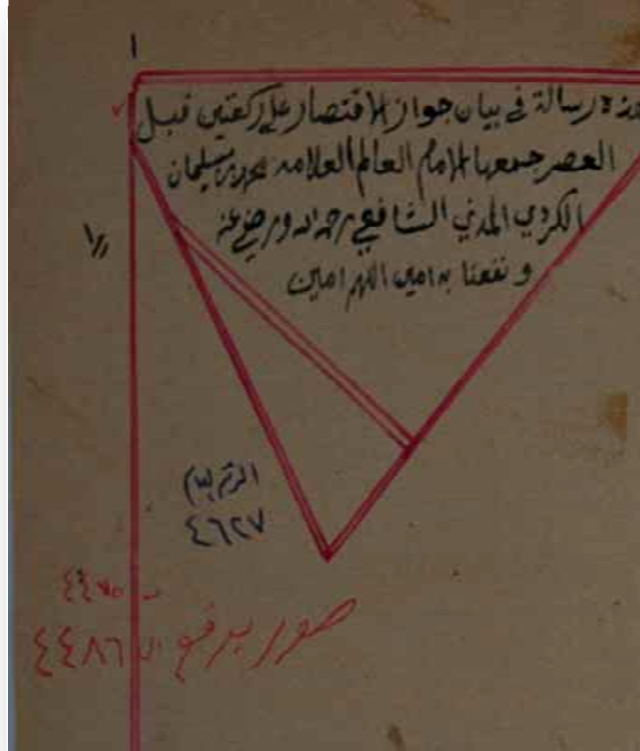 ١
هذه رسالة في بيان جواز الاقتصار على ركعتين قبل
العصر جمعها الامام العالم العلامه محمد بن سليمان
الكردي المدني الشافعي رحمه الله ورضي عنه
و نفعنا به امين اللهم امين
الرقم
٤٦٢٧
٤٤٧٥
صور برقم ٤٤٨٦